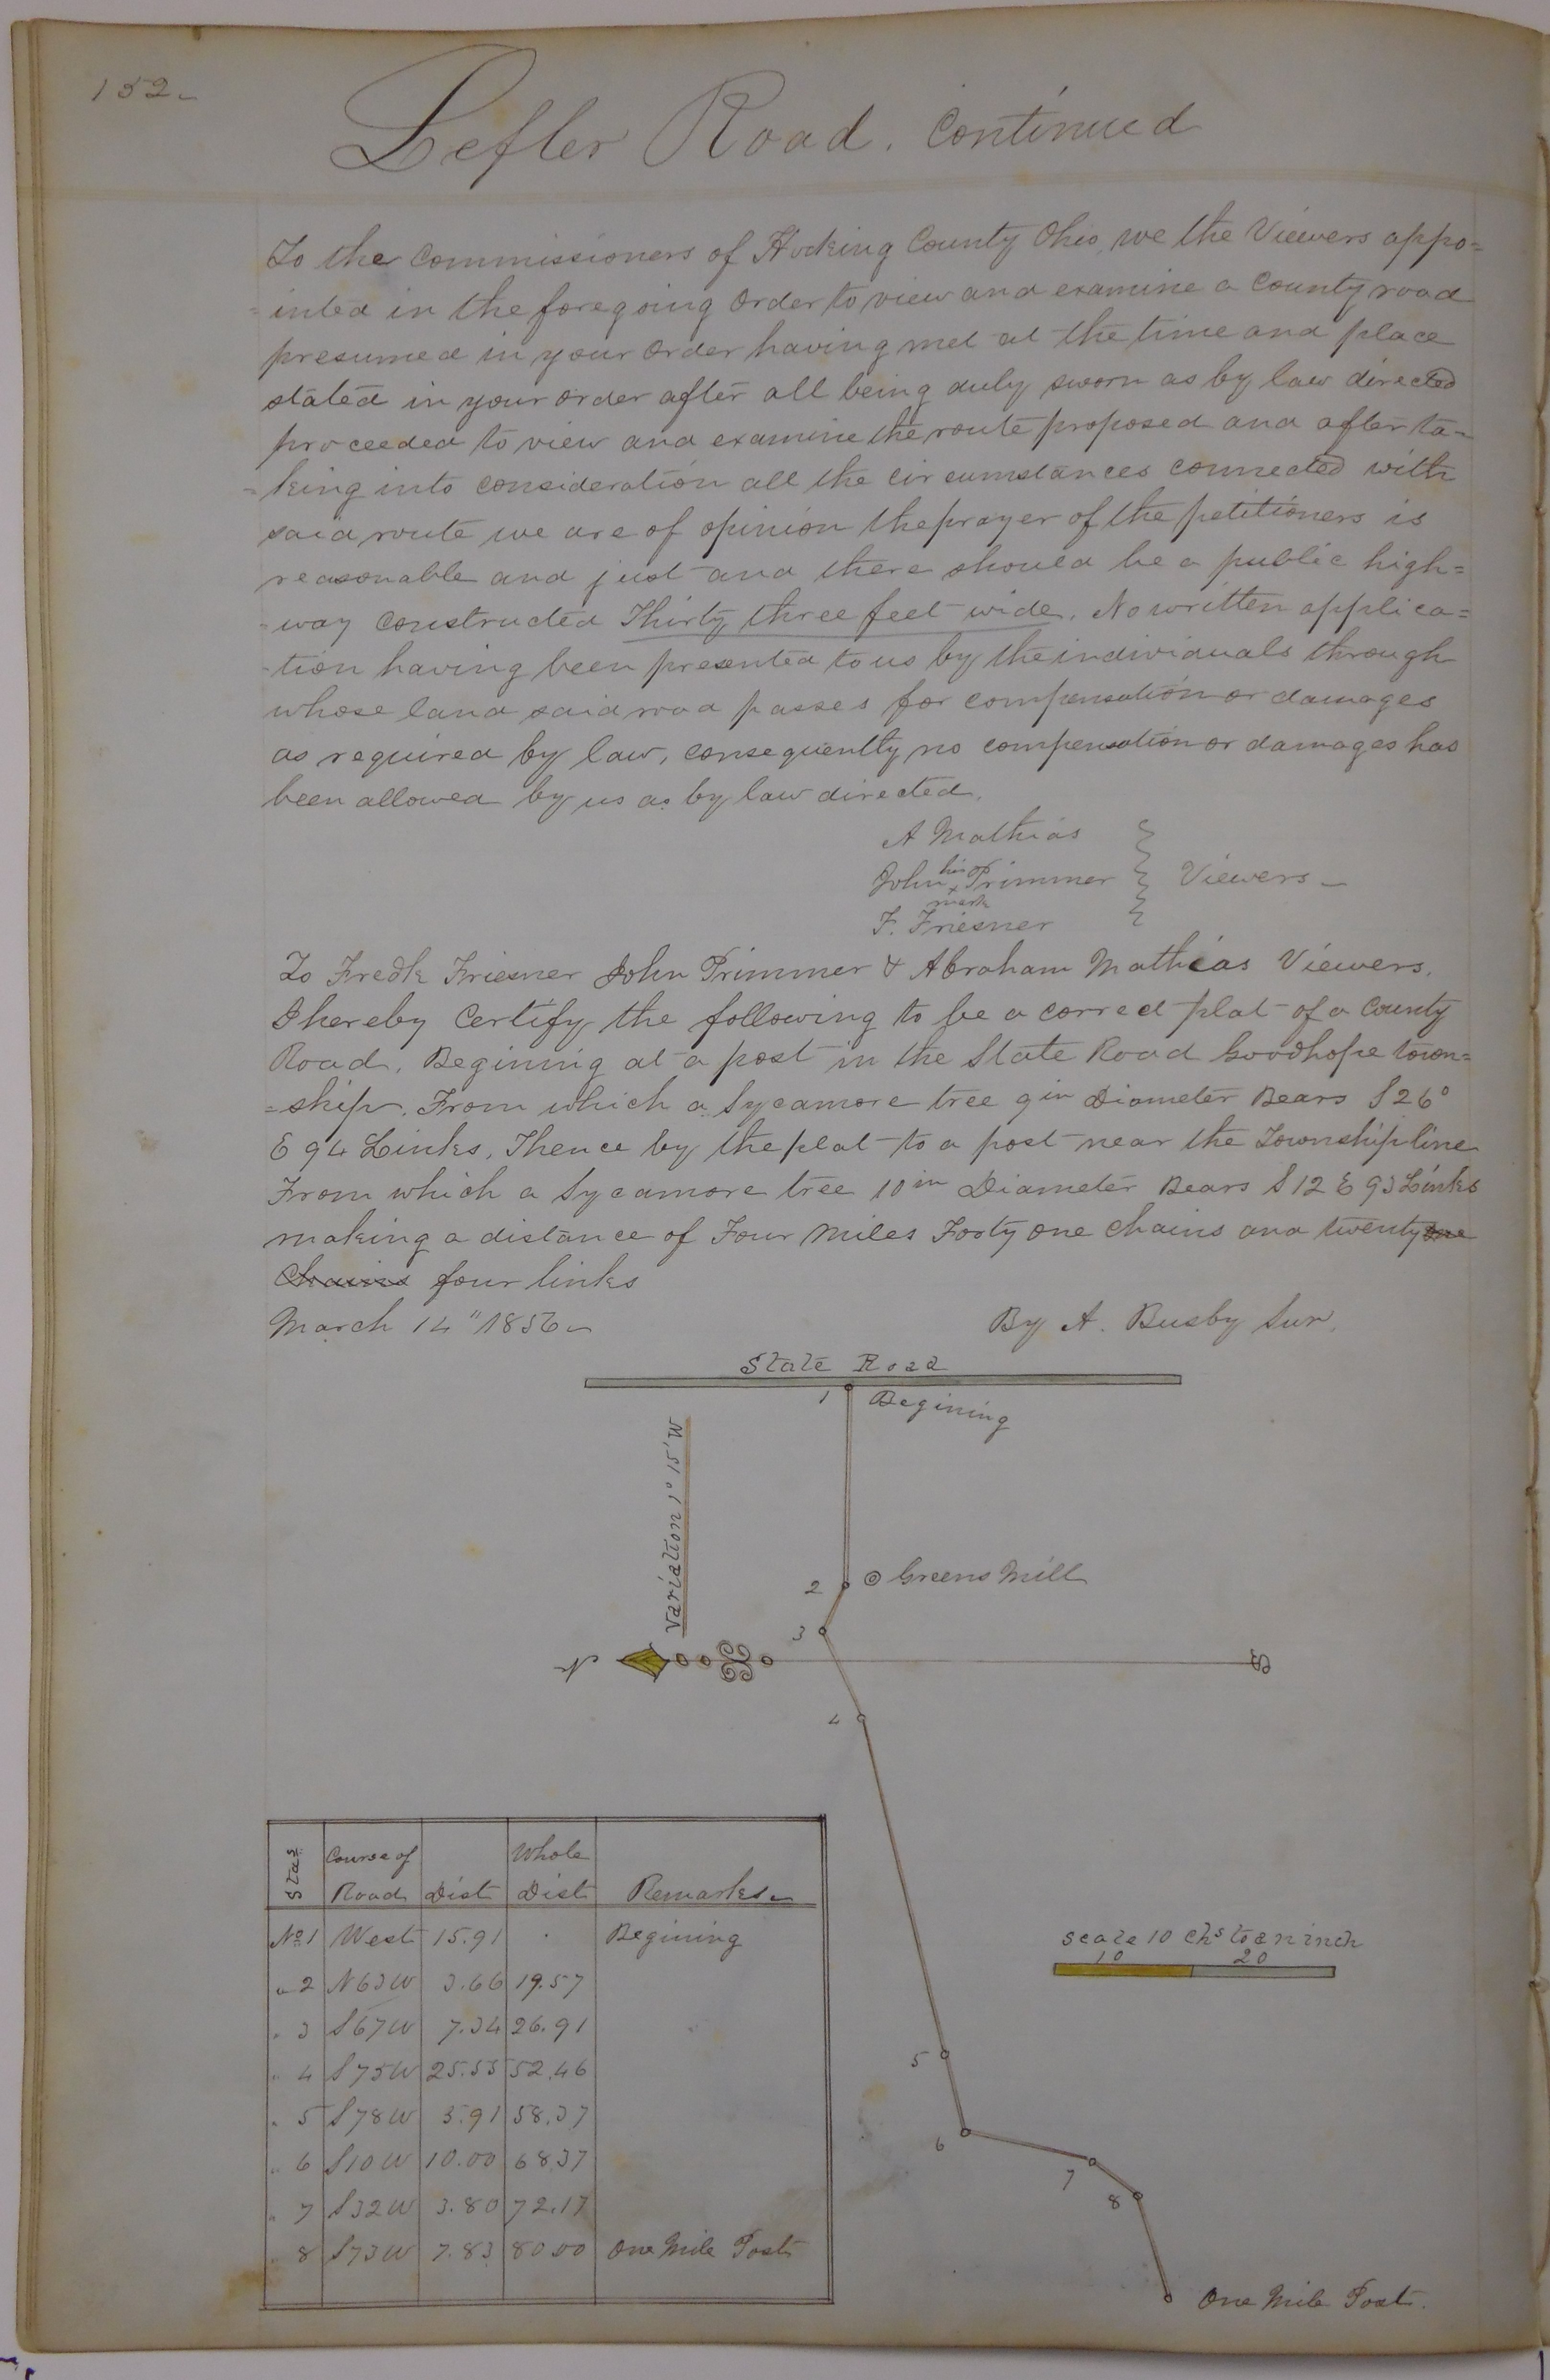 152-
Lefler Road. Continued
To the Commissioners of Hocking County Ohio, we the Viewers appo=
=inted in the foregoing order to view and examine a County road
presumed in your order having met at the time and place
stated in your order after all being duly sworn as by law directed
proceeded to view and examine the route proposed and after ta=
=king into consideration all the circumstances connected with
said route we are of opinion the prayer of the petitioners is
reasonable and just and there should be a public high=
-way constructed Thirty three feet wide. No written applica=
-tion having been presented to us by the individuals through
whose land said road passes for compensation or damages
as required by law, consequently no compensation or damages has
been allowed by us as by law directed.
A Mathias
John his x mark Primmer } Viewers-
F. Friesner
To Fredk Friesner John Primmer & Abraham Mathias Viewers.
I hereby Certify the following to be a correct plat of a County
Road. Begining at a post in the State Road Goodhope town=
=ship. From which a Sycamore tree 9 in Diameter Bears S 26°
E 94 Links, Thence by the plat to a post near the Township line
From which a Sycamore tree 10 in Diameter Bears S 12 E 93 Links
making a distance of Four Miles Forty one Chains and twenty one
Chains four links
March 14" 1856- By A. Busby Sur.
State Road
1 Begining
Variation 1° 15' W
2 Greens Mill
3
N S
4
Stas Course of Road Dist Whole Dist Remarks-
No 1 West 15.91 . Begining
" 2 N63W 3.66 19.57
" 3 S67W 7.34 26.91
" 4 S75W 25.55 52.46
" 5 S78W 5.91 58.37
" 6 S10W 10.00 68.37
" 7 S32W 3.80 72.17
" 8 S73W 7.83 80.00 One Mile Post
Scale 10 Chs to an inch
10 20
5
6
7
8
One Mile Post.